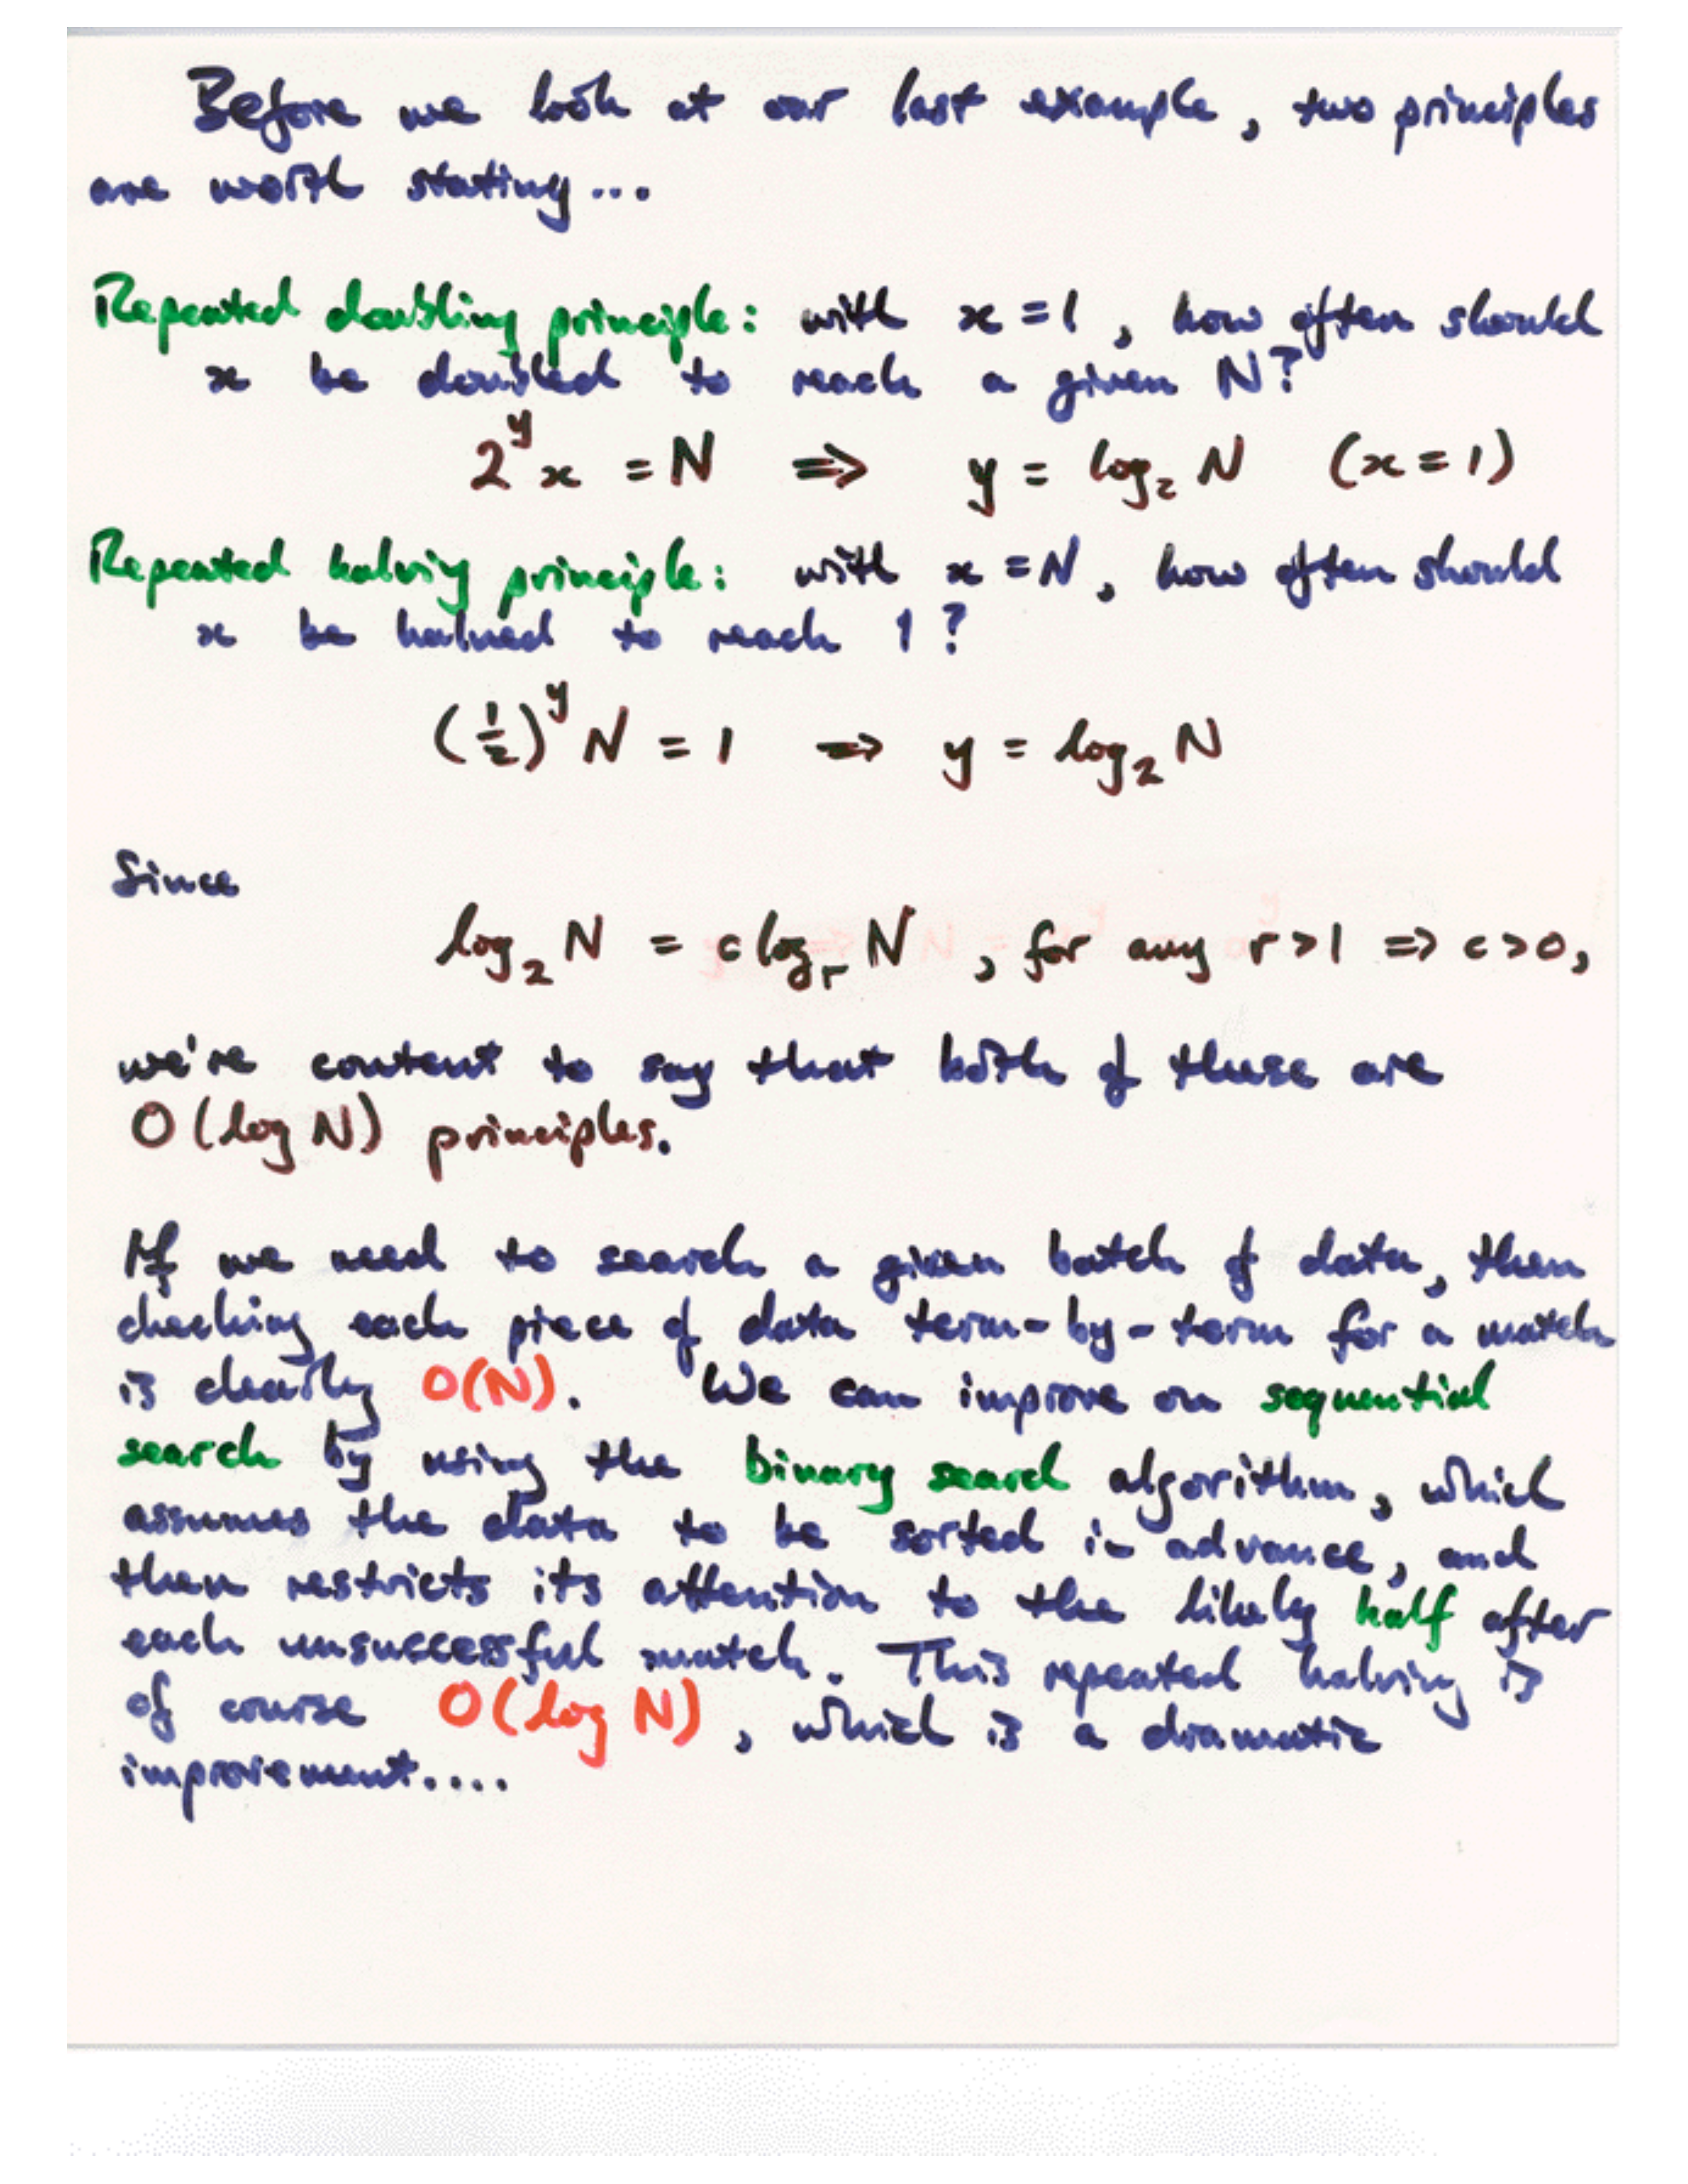 Before we look at our last example, two principles
are worth stating...
Repeated doubling principle: with x = 1, how often should
x be doubled to reach a given N?
2^y x = N ⇒ y = log₂ N (x = 1)
Repeated halving principle: with x = N, how often should
x be halved to reach 1?
(1/2)^y N = 1 ⇒ y = log₂ N
Since
log₂ N = c logᵣ N, for any r > 1 ⇒ c > 0,
we're content to say that both of these are
O(log N) principles.
If we need to search a given batch of data, then
checking each piece of data term-by-term for a match
is clearly O(N). We can improve on sequential
search by using the binary search algorithm, which
assumes the data to be sorted in advance, and
then restricts its attention to the likely half after
each unsuccessful match. This repeated halving is
of course O(log N), which is a dramatic
improvement....